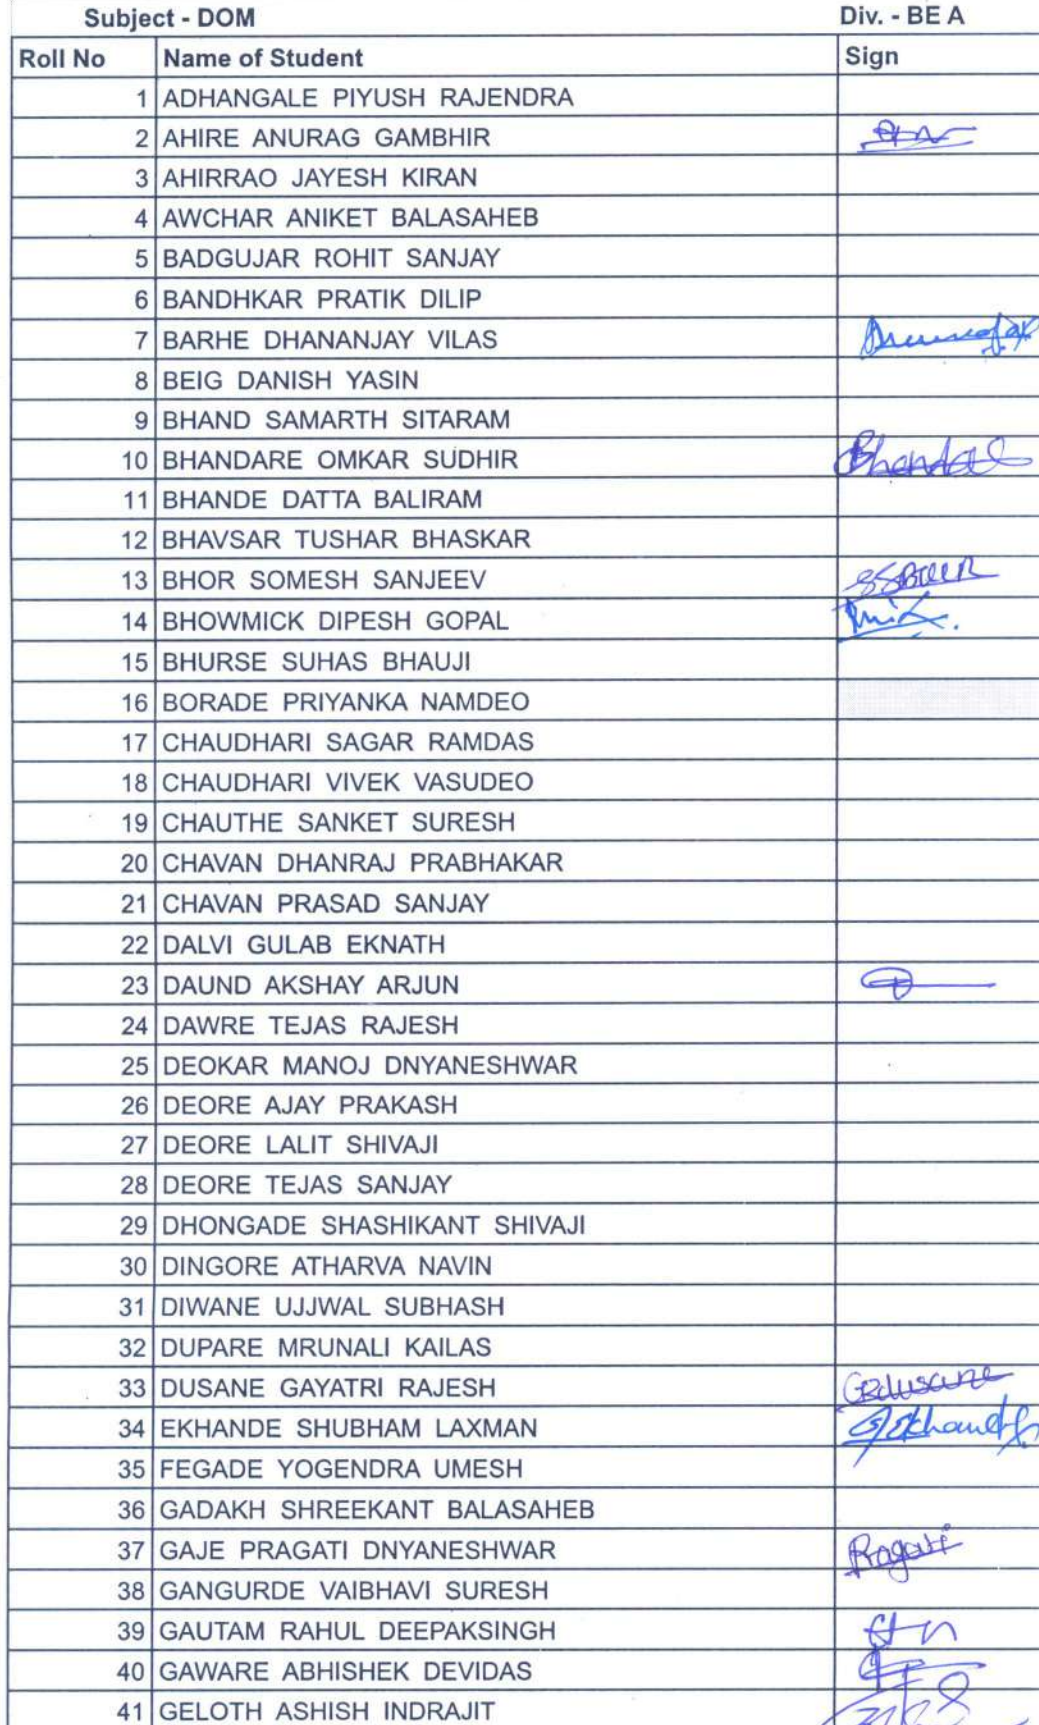 Subject - DOM Div. - BE A
Roll No Name of Student Sign
1 ADHANGALE PIYUSH RAJENDRA
2 AHIRE ANURAG GAMBHIR
3 AHIRRAO JAYESH KIRAN
4 AWCHAR ANIKET BALASAHEB
5 BADGUJAR ROHIT SANJAY
6 BANDHKAR PRATIK DILIP
7 BARHE DHANANJAY VILAS
8 BEIG DANISH YASIN
9 BHAND SAMARTH SITARAM
10 BHANDARE OMKAR SUDHIR
11 BHANDE DATTA BALIRAM
12 BHAVSAR TUSHAR BHASKAR
13 BHOR SOMESH SANJEEV
14 BHOWMICK DIPESH GOPAL
15 BHURSE SUHAS BHAUJI
16 BORADE PRIYANKA NAMDEO
17 CHAUDHARI SAGAR RAMDAS
18 CHAUDHARI VIVEK VASUDEO
19 CHAUTHE SANKET SURESH
20 CHAVAN DHANRAJ PRABHAKAR
21 CHAVAN PRASAD SANJAY
22 DALVI GULAB EKNATH
23 DAUND AKSHAY ARJUN
24 DAWRE TEJAS RAJESH
25 DEOKAR MANOJ DNYANESHWAR
26 DEORE AJAY PRAKASH
27 DEORE LALIT SHIVAJI
28 DEORE TEJAS SANJAY
29 DHONGADE SHASHIKANT SHIVAJI
30 DINGORE ATHARVA NAVIN
31 DIWANE UJJWAL SUBHASH
32 DUPARE MRUNALI KAILAS
33 DUSANE GAYATRI RAJESH GRdusane
34 EKHANDE SHUBHAM LAXMAN
35 FEGADE YOGENDRA UMESH
36 GADAKH SHREEKANT BALASAHEB
37 GAJE PRAGATI DNYANESHWAR Pragati
38 GANGURDE VAIBHAVI SURESH
39 GAUTAM RAHUL DEEPAKSINGH
40 GAWARE ABHISHEK DEVIDAS
41 GELOTH ASHISH INDRAJIT